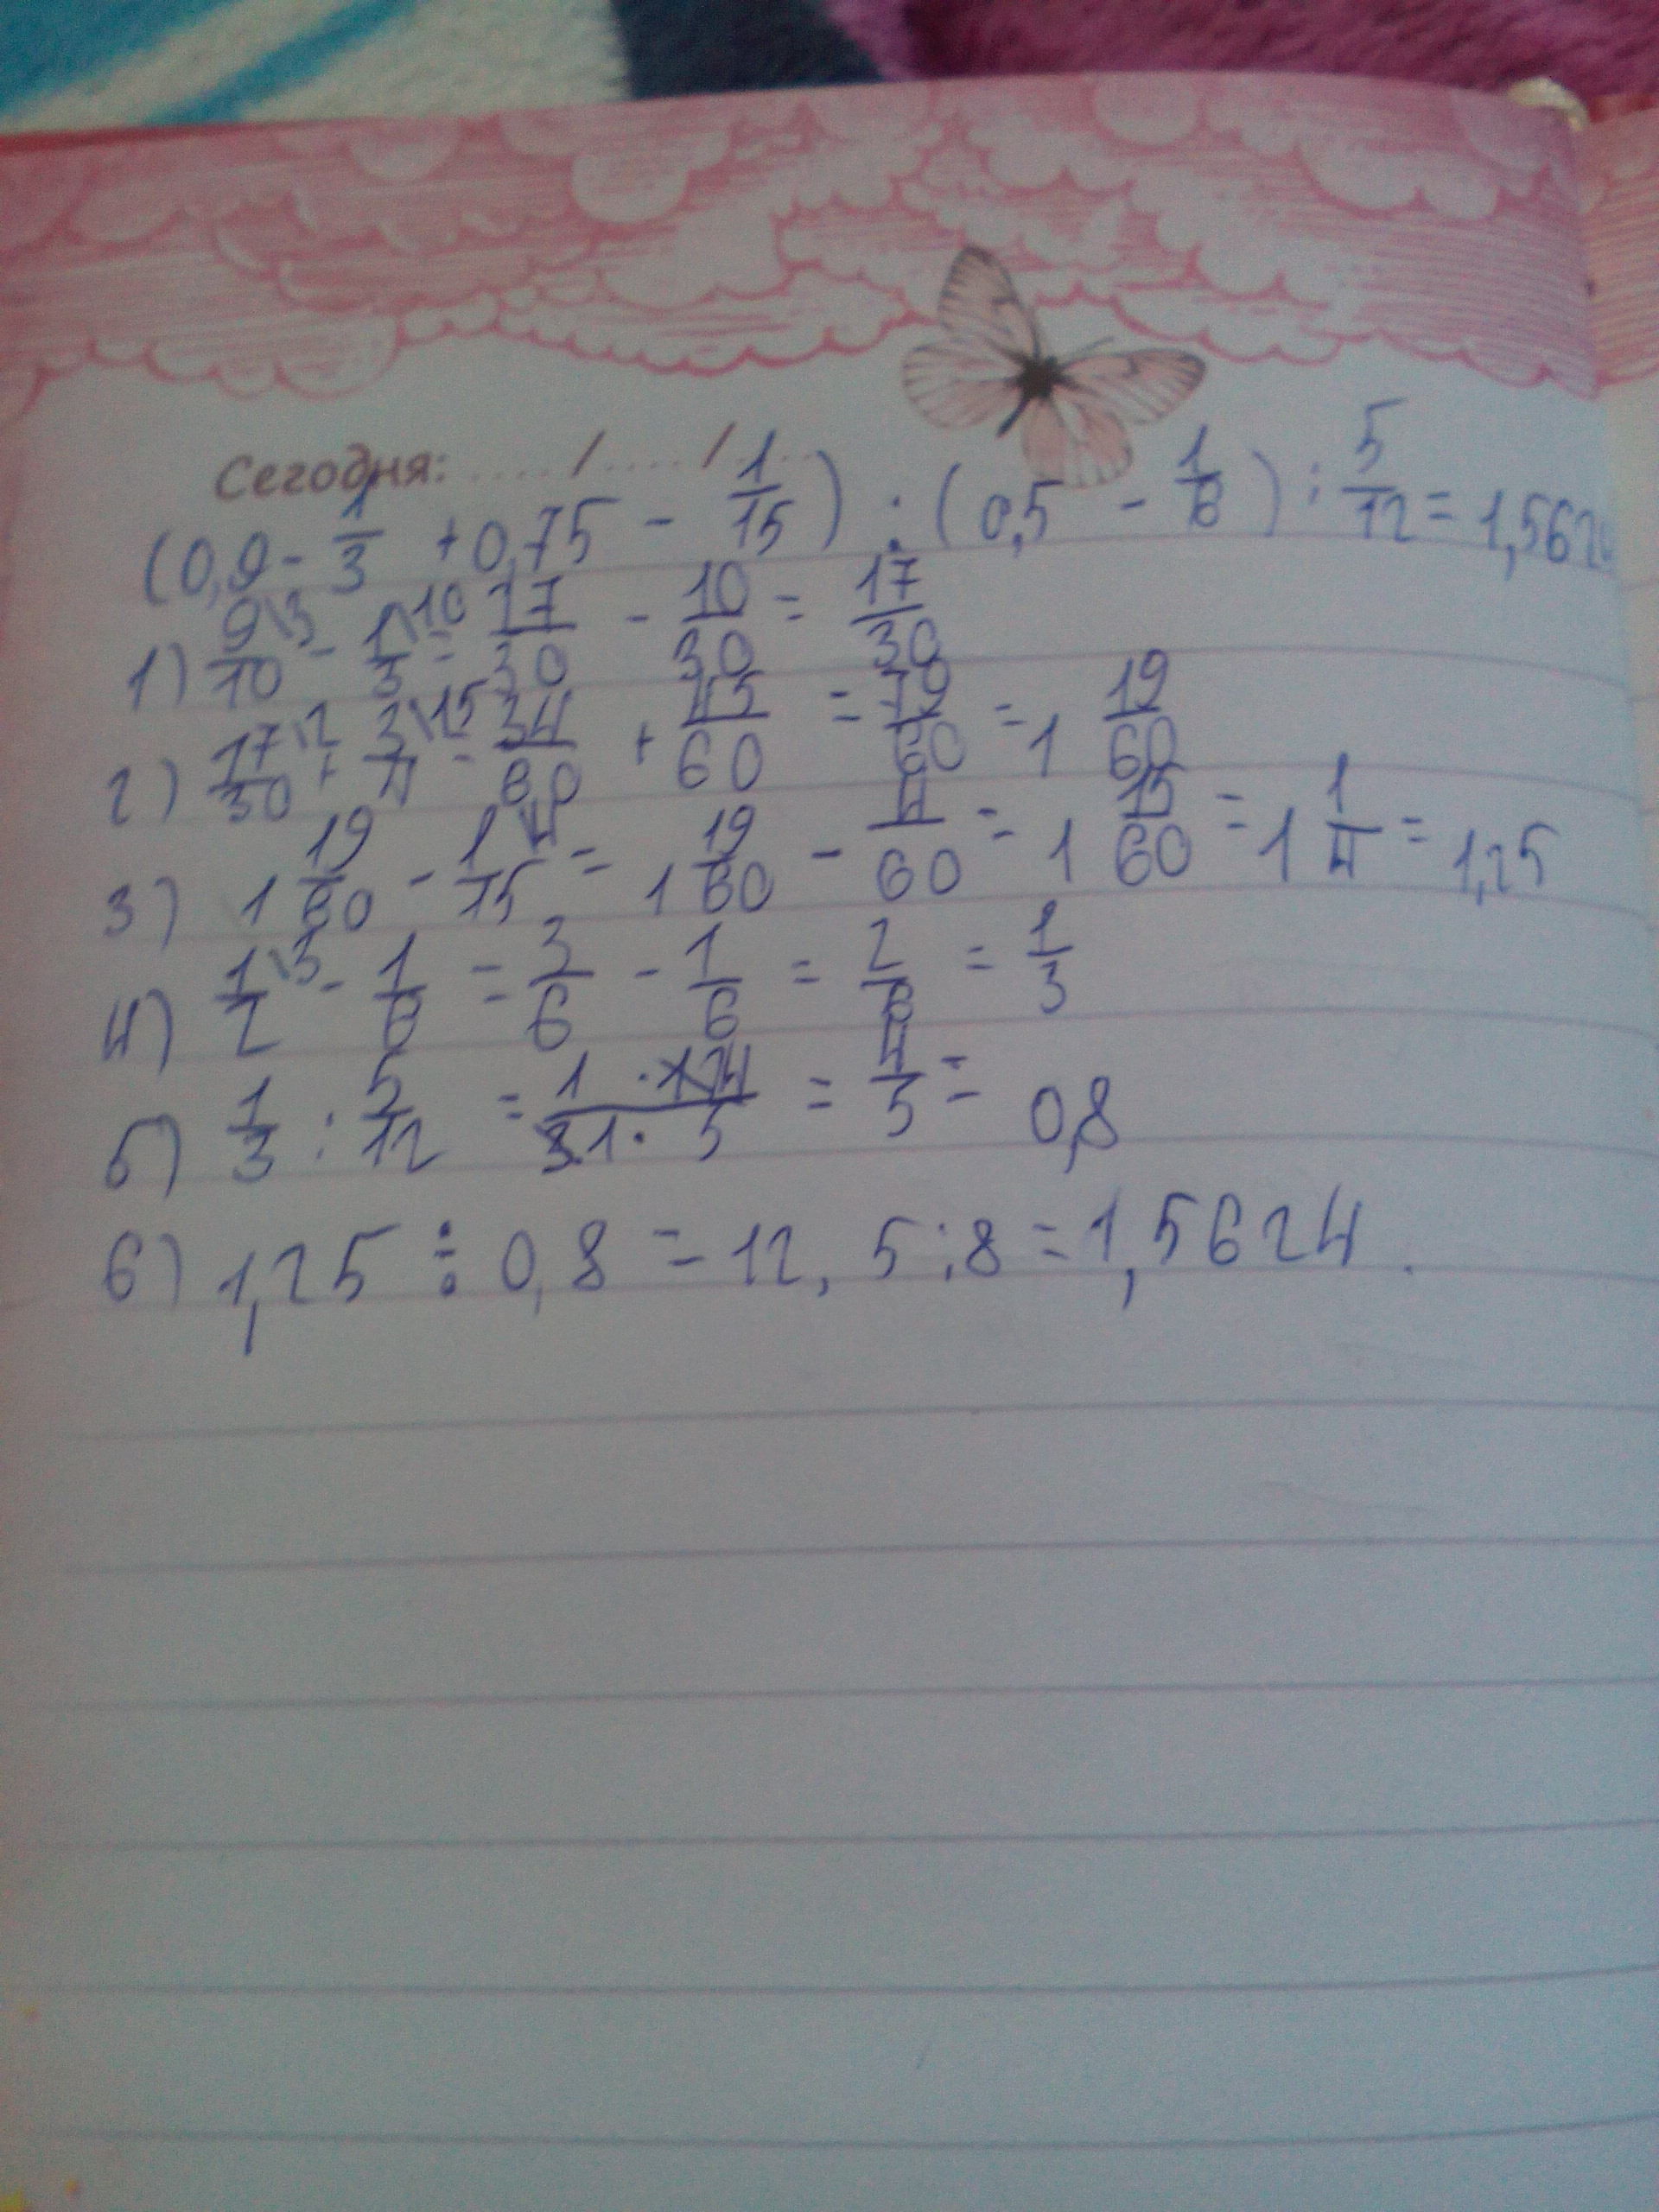 Сегодня: ..../..../....
(0,9 - 1/3 + 0,75 - 1/15) : (0,5 - 1/6) : 5/12 = 1,5624
1) 9\3/10 - 1\10/3 = 27/30 - 10/30 = 17/30
2) 17\2/30 + 3\15/4 = 34/60 + 45/60 = 79/60 = 1 19/60
3) 1 19/60 - 1\4/15 = 1 19/60 - 4/60 = 1 15/60 = 1 1/4 = 1,25
4) 1\3/2 - 1/6 = 3/6 - 1/6 = 2/6 = 1/3
5) 1/3 : 5/12 = 1 · 12 4/3 1 · 5 = 4/5 = 0,8
6) 1,25 : 0,8 = 12,5 : 8 = 1,5624.